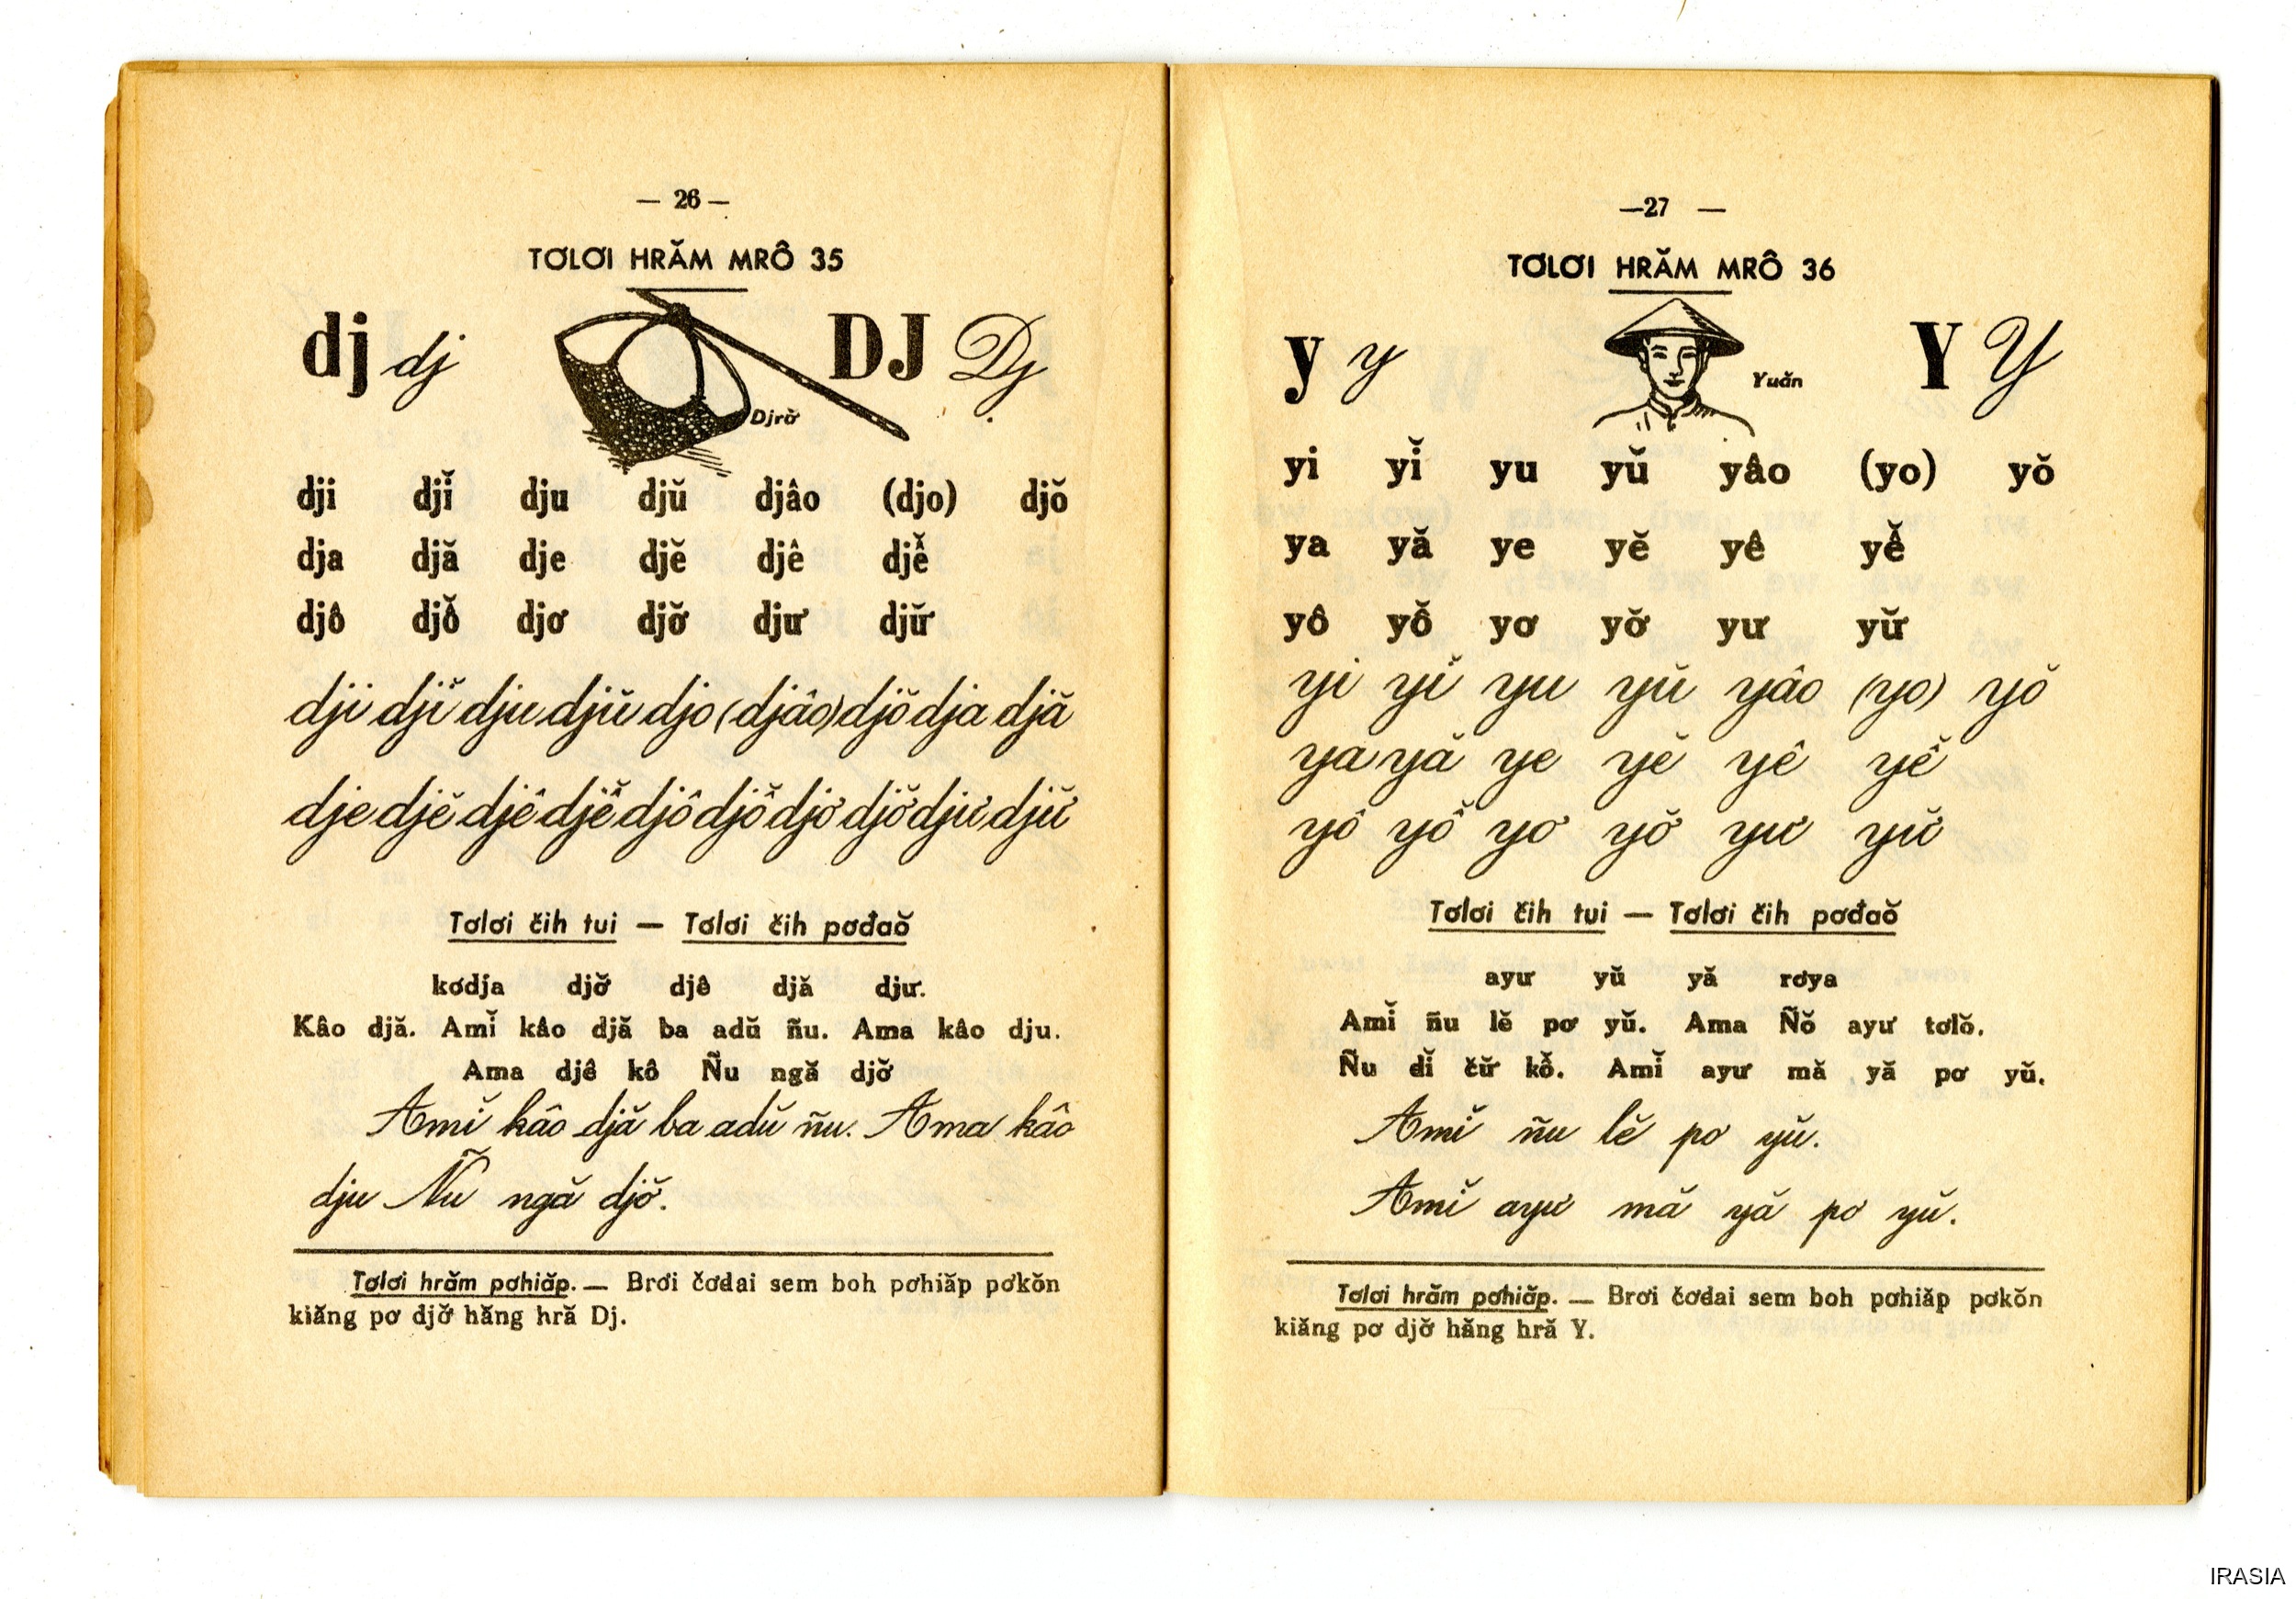 — 26 —
TƠLƠI HRĂM MRÔ 35
dj dj DJ Dj
Djrơ̆
dji djĭ dju djŭ djâo (djo) djŏ
dja djă dje djĕ djê djê̆
djô djô̆ djơ djơ̆ djư djư̆
dji djĭ dju djŭ djo (djâo) djŏ dja djă
dje djĕ djê djê̆ djô djô̆ djơ djơ̆ djư djư̆
Tơlơi čih tui — Tơlơi čih pơđaŏ
kơdja djơ̆ djê djă djư.
Kâo djă. Amĭ kâo djă ba adŭ ñu. Ama kâo dju.
Ama djê kô Ñu ngă djơ̆
Amĭ kâo djă ba adŭ ñu. Ama kâo
dju Ñu ngă djơ̆.
Tơlơi hrăm pơhiăp. — Brơi čơdai sem boh pơhiăp pơkŏn
kiăng pơ djơ̆ hăng hră Dj.
—27 —
TƠLƠI HRĂM MRÔ 36
y y Y Y
Yuăn
yi yĭ yu yŭ yâo (yo) yŏ
ya yă ye yĕ yê yê̆
yô yô̆ yơ yơ̆ yư yư̆
yi yĭ yu yŭ yâo (yo) yŏ
ya yă ye yĕ yê yê̆
yô yô̆ yơ yơ̆ yư yư̆
Tơlơi čih tui — Tơlơi čih pơđaŏ
ayư yŭ yă rơya
Amĭ ñu lĕ pơ yŭ. Ama Ñŏ ayư tơlŏ.
Ñu dĭ čư̆ kô̆. Amĭ ayư mă yă pơ yŭ.
Amĭ ñu lĕ pơ yŭ.
Amĭ ayư mă yă pơ yŭ.
Tơlơi hrăm pơhiăp. — Brơi čơdai sem boh pơhiăp pơkŏn
kiăng pơ djơ̆ hăng hră Y.
IRASIA